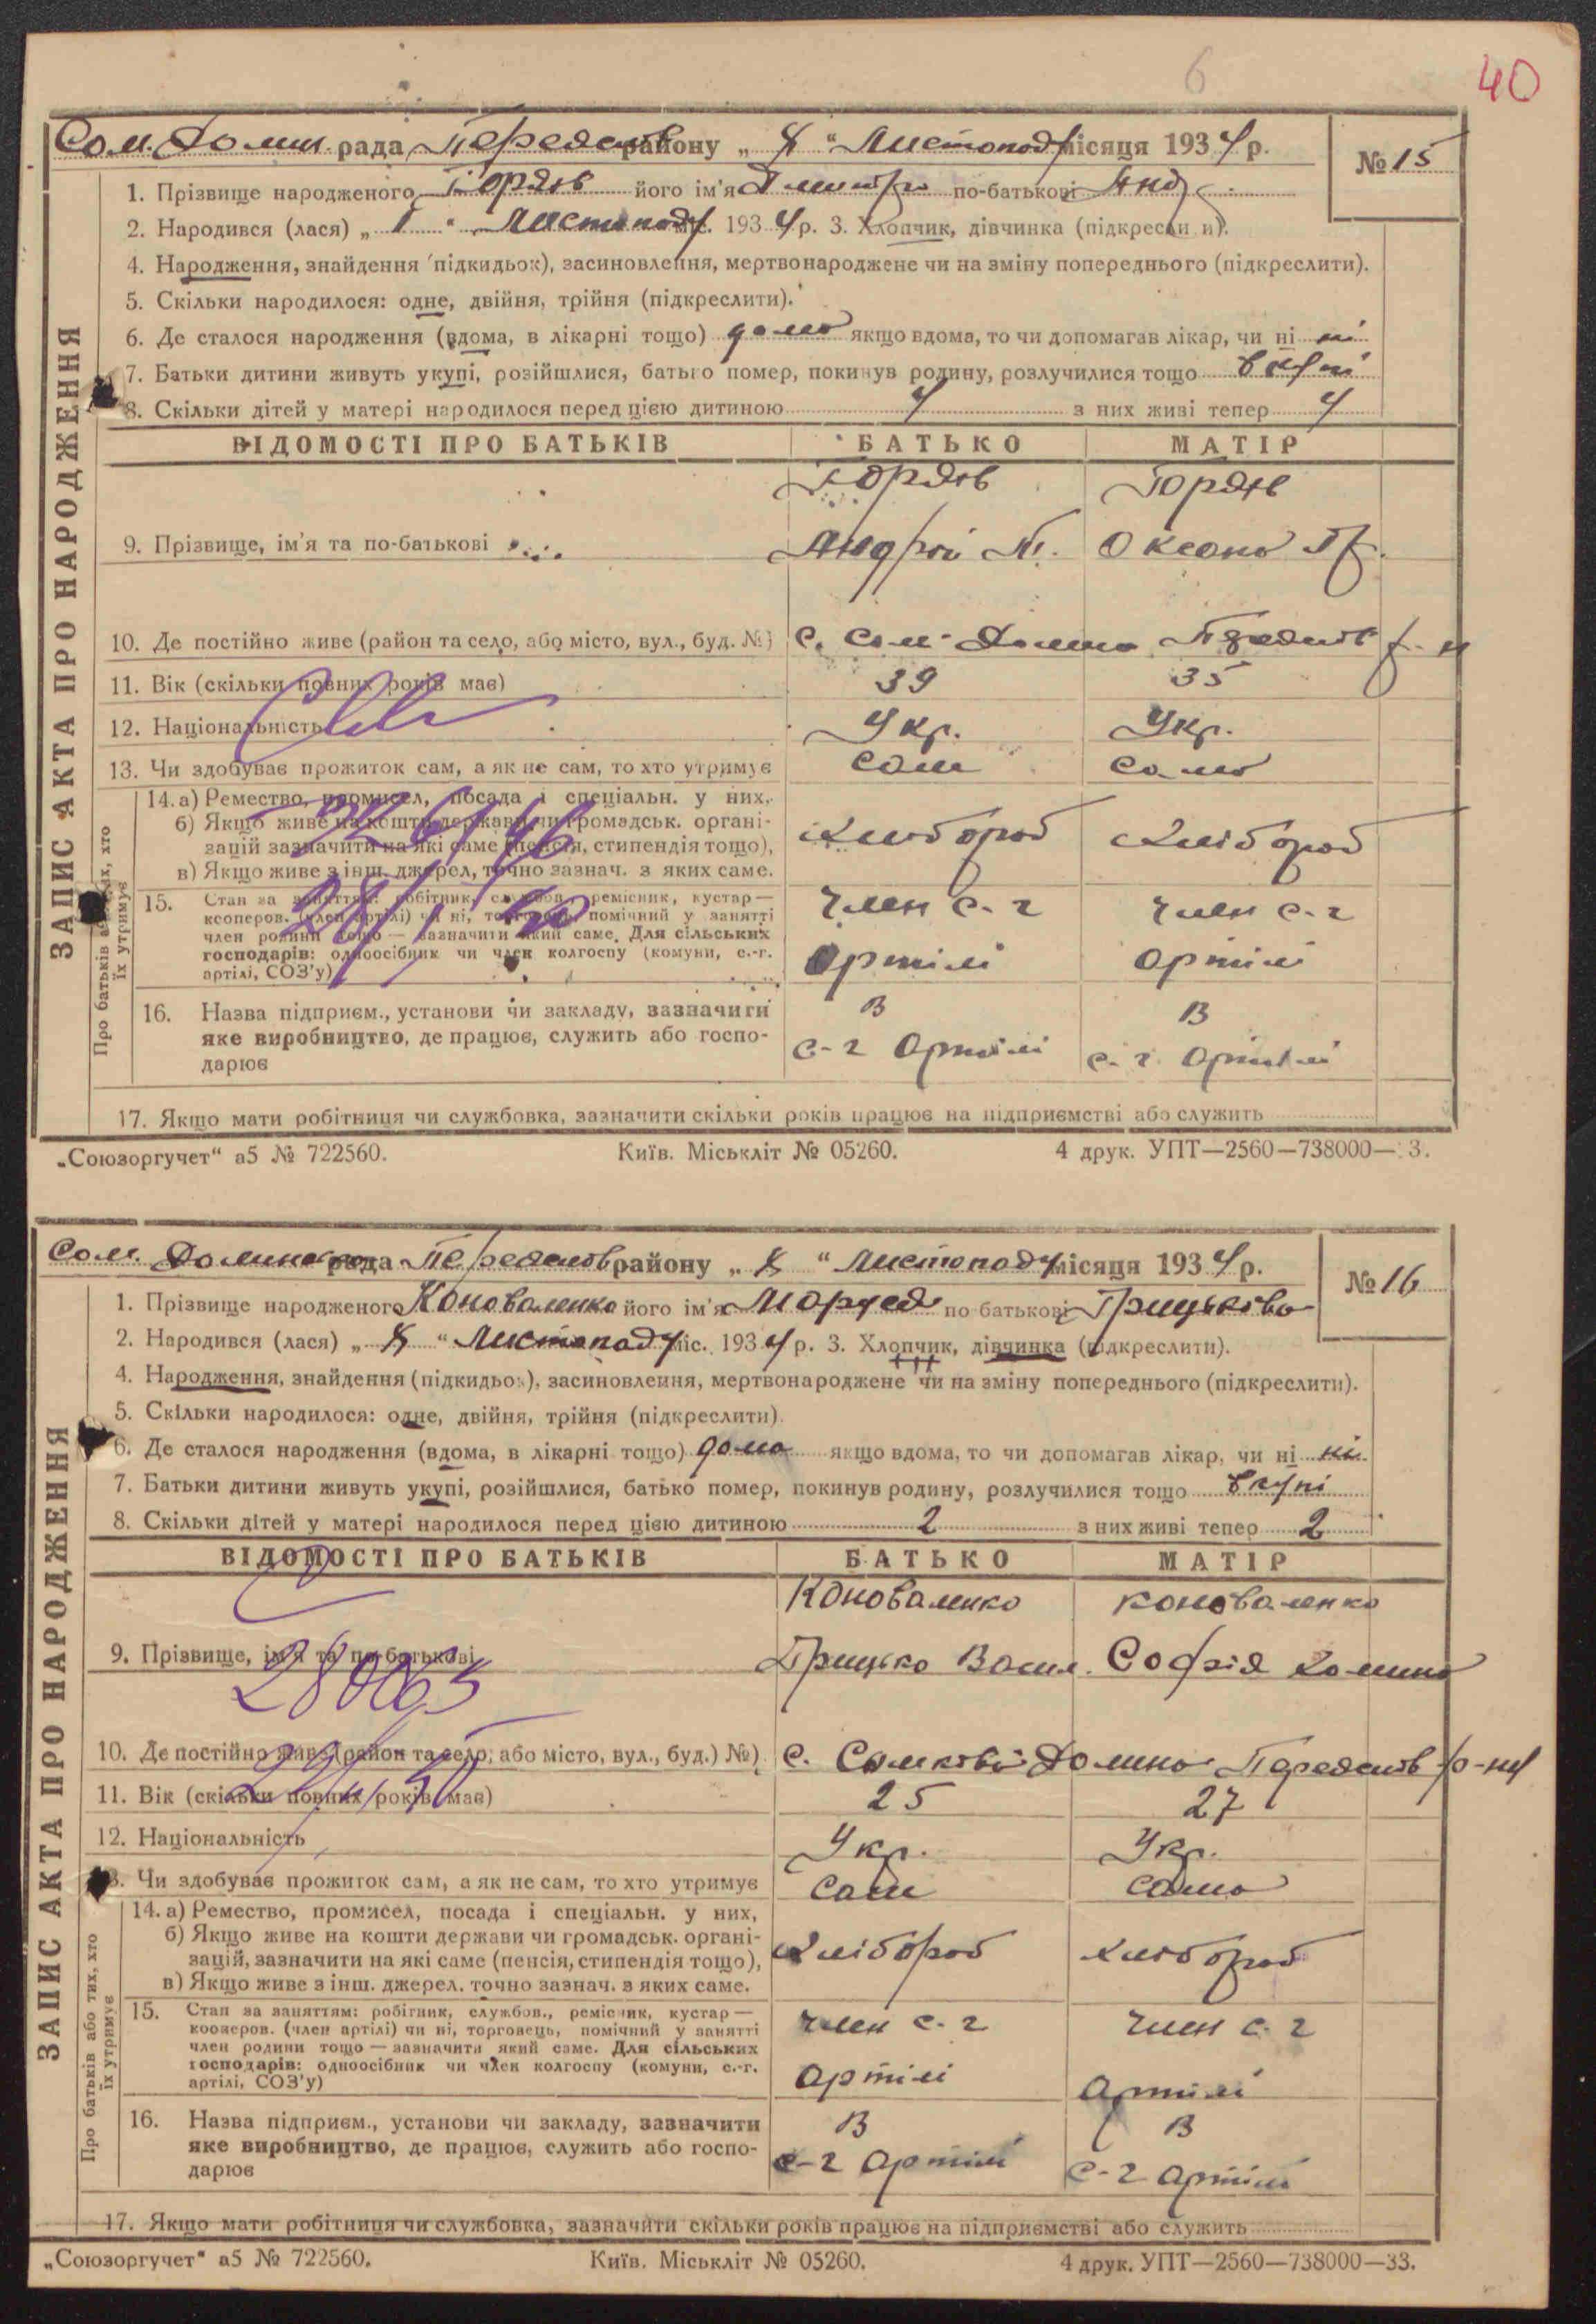 6
40
Сом. Долин. рада Переяслів району „ 8 “ Листопаду місяця 1934 р.
№ 15
1. Прізвище народженого його ім'я Дмитро по-батькові Анд
2. Народився (лася) „ 1 “ Листопаду міс. 1934 р. 3. Хлопчик, дівчинка (підкреслити).
4. Народження, знайдення (підкидьок), засиновлення, мертвонароджене чи на зміну попереднього (підкреслити).
5. Скільки народилося: одне, двійня, трійня (підкреслити).
6. Де сталося народження (вдома, в лікарні тощо) дома якщо вдома, то чи допомагав лікар, чи ні ні
7. Батьки дитини живуть укупі, розійшлися, батько помер, покинув родину, розлучилися тощо вкупі
8. Скільки дітей у матері народилося перед цією дитиною 4 з них живі тепер 4
ВІДОМОСТІ ПРО БАТЬКІВ БАТЬКО МАТІР
9. Прізвище, ім'я та по-батькові Андрій Оксана
10. Де постійно живе (район та село, або місто, вул., буд. №) с. Сом. Долина Переяслів р-н
11. Вік (скільки повних років має) 39 35
12. Національність Укр. Укр.
13. Чи здобуває прожиток сам, а як не сам, то хто утримує сам сама
14. а) Ремество, промисел, посада і спеціальн. у них,
б) Якщо живе на кошти держави чи громадськ. органі-
зацій зазначити на які саме (пенсія, стипендія тощо),
в) Якщо живе з інш. джерел, точно зазнач. з яких саме.
хлібороб хлібороб
15. Стан за заняттям: робітник, службов., ремісник, кустар —
кооперов. (член артілі) чи ні, торговець, помічний у занятті
член родини тощо — зазначити який саме. Для сільських
господарів: одноосібник чи член колгоспу (комуни, с.-г.
артілі, СОЗ'у)
член с-г член с-г
артілі артілі
16. Назва підприєм., установи чи закладу, зазначити
яке виробництво, де працює, служить або госпо-
дарює
в в
с-г артілі с-г артілі
17. Якщо мати робітниця чи службовка, зазначити скільки років працює на підприємстві або служить
ЗАПИС АКТА ПРО НАРОДЖЕННЯ
Про батьків або тих, хто
їх утримує
„Союзоргучет“ а5 № 722560. Київ. Міськліт № 05260. 4 друк. УПТ—2560—738000—33.
Сом. Долинська рада Переяслів району „ 8 “ Листопаду місяця 1934 р.
№ 16
1. Прізвище народженого Коноваленко його ім'я Маруся по батькові Грицьківна
2. Народився (лася) „ 8 “ Листопаду міс. 1934 р. 3. Хлопчик, дівчинка (підкреслити).
4. Народження, знайдення (підкидьок), засиновлення, мертвонароджене чи на зміну попереднього (підкреслити).
5. Скільки народилося: одне, двійня, трійня (підкреслити).
6. Де сталося народження (вдома, в лікарні тощо) дома якщо вдома, то чи допомагав лікар, чи ні ні
7. Батьки дитини живуть укупі, розійшлися, батько помер, покинув родину, розлучилися тощо вкупі
8. Скільки дітей у матері народилося перед цією дитиною 2 з них живі тепер 2
ВІДОМОСТІ ПРО БАТЬКІВ БАТЬКО МАТІР
Коноваленко Коноваленко
9. Прізвище, ім'я та по-батькові Грицько Васил. Софія
10. Де постійно живе (район та село, або місто, вул., буд.) №) с. Сомкова Долина Переяслів р-ну
11. Вік (скільки повних років має) 25 27
12. Національність Укр. Укр.
13. Чи здобуває прожиток сам, а як не сам, то хто утримує сам сама
14. а) Ремество, промисел, посада і спеціальн. у них,
б) Якщо живе на кошти держави чи громадськ. органі-
зацій, зазначити на які саме (пенсія, стипендія тощо),
в) Якщо живе з інш. джерел, точно зазнач. з яких саме.
хлібороб хлібороб
15. Стан за заняттям: робітник, службов., ремісник, кустар —
кооперов. (член артілі) чи ні, торговець, помічний у занятті
член родини тощо — зазначити який саме. Для сільських
господарів: одноосібник чи член колгоспу (комуни, с.-г.
артілі, СОЗ'у)
член с-г член с-г
артілі артілі
16. Назва підприєм., установи чи закладу, зазначити
яке виробництво, де працює, служить або госпо-
дарює
в в
с-г артілі с-г артілі
17. Якщо мати робітниця чи службовка, зазначити скільки років працює на підприємстві або служить
ЗАПИС АКТА ПРО НАРОДЖЕННЯ
Про батьків або тих, хто
їх утримує
„Союзоргучет“ а5 № 722560. Київ. Міськліт № 05260. 4 друк. УПТ—2560—738000—33.